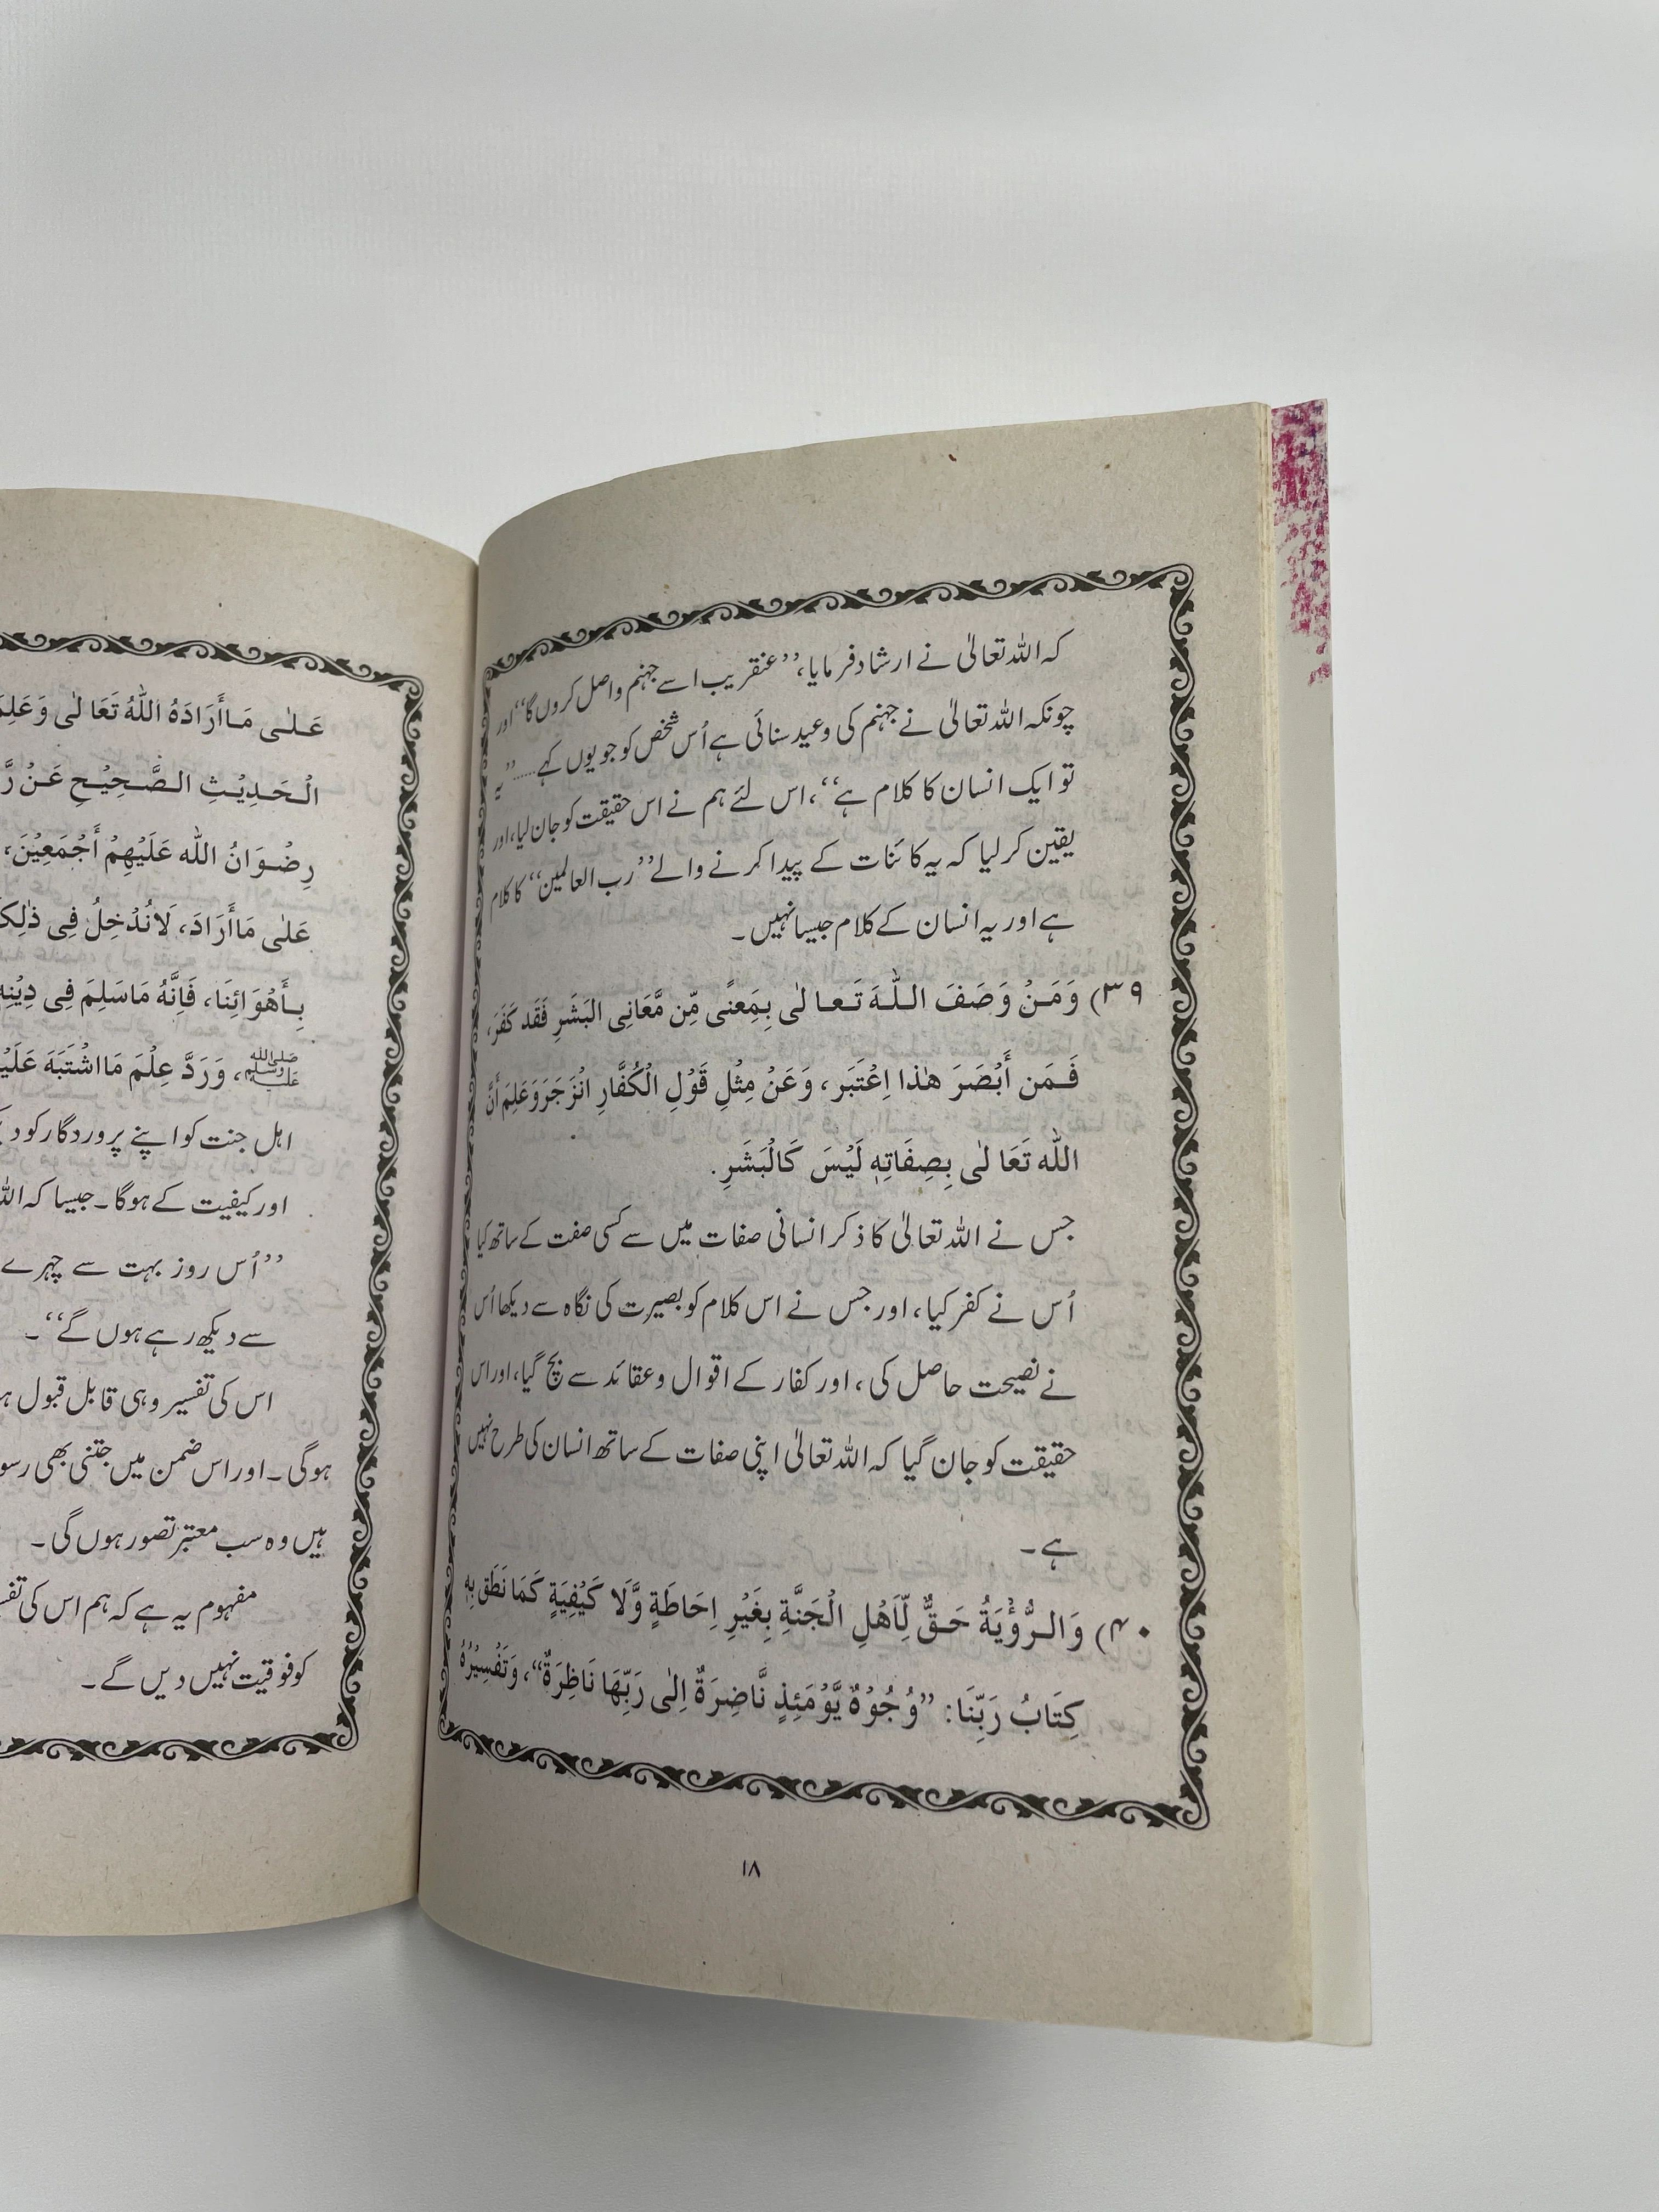 کہ اللہ تعالیٰ نے ارشاد فرمایا، ’’عنقریب اسے جہنم واصل کروں گا‘‘ اور
چونکہ اللہ تعالیٰ نے جہنم کی وعید سنائی ہے اُس شخص کو جو یوں کہے.....’’یہ
تو ایک انسان کا کلام ہے‘‘، اس لئے ہم نے اس حقیقت کو جان لیا، اور
یقین کرلیا کہ یہ کائنات کے پیدا کرنے والے ’’رب العالمین‘‘ کا کلام
ہے اور یہ انسان کے کلام جیسا نہیں۔
۳۹) وَمَنْ وَصَفَ اللّٰهَ تَعَالٰى بِمَعنًى مِّن مَّعَانِى البَشَرِ فَقَد كَفَرَ،
فَمَن أَبْصَرَ هٰذا اِعْتَبَر، وَعَنْ مِثْلِ قَوْلِ الْكُفَّارِ انْزَجَرَ وَعَلِمَ أَنَّ
اللّٰه تَعَالٰى بِصِفَاتِهٖ لَيْسَ كَالْبَشَرِ.
جس نے اللہ تعالیٰ کا ذکر انسانی صفات میں سے کسی صفت کے ساتھ کیا
اُس نے کفر کیا، اور جس نے اس کلام کو بصیرت کی نگاہ سے دیکھا اُس
نے نصیحت حاصل کی، اور کفار کے اقوال وعقائد سے بچ گیا، اور اس
حقیقت کو جان گیا کہ اللہ تعالیٰ اپنی صفات کے ساتھ انسان کی طرح نہیں
ہے۔
۴۰) وَالرُّؤْيَةُ حَقٌّ لِّاَهْلِ الْجَنَّةِ بِغَيْرِ اِحَاطَةٍ وَّلَا كَيْفِيَةٍ كَمَا نَطَقَ بِهٖ
كِتَابُ رَبِّنَا: ”وُجُوْهٌ يَّوْمَئِذٍ نَّاضِرَةٌ اِلٰى رَبِّهَا نَاظِرَةٌ“، وَتَفْسِيْرُهُ
۱۸
عَلٰى مَاأَرَادَهُ اللّٰهُ تَعَالٰى وَعَلِمَ
الْحَدِيْثِ الصَّحِيْحِ عَنْ
رِضْوَانُ اللّٰه عَلَيْهِمْ أَجْمَعِيْنَ،
عَلٰى مَاأَرَادَ، لَانُدْخِلُ فِى
بِأَهْوَائِنَا، فَاِنَّهُ مَاسَلِمَ فِى
ﷺ، وَرَدَّ عِلْمَ مَااشْتَبَهَ
اہل جنت کو اپنے پروردگار کو
اور کیفیت کے ہوگا۔ جیسا کہ
’’اُس روز بہت سے چہرے
سے دیکھ رہے ہوں گے‘‘۔
اس کی تفسیر وہی قابل قبول
ہوگی۔ اور اس ضمن میں جتنی بھی
ہیں وہ سب معتبر تصور ہوں گی۔
مفہوم یہ ہے کہ ہم اس کی
کو فوقیت نہیں دیں گے۔